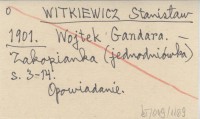 o WITKIEWICZ Stanisław
1901. Wojtek Gandara. —
Zakopianka (jednodniówka)
s. 3-14.
Opowiadanie.